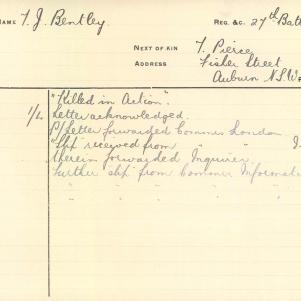 NAME T. J. Bentley. REG. &C. 27th Batt
NEXT OF KIN T. Pierce
ADDRESS Fisher Street
Auburn N.S.W.
"Killed in Action".
1/2 Letter acknowledged.
P/Letter forwarded Commrs London
"Slip received from " "
therein forwarded Inquirer
Further slip from Commr Informati